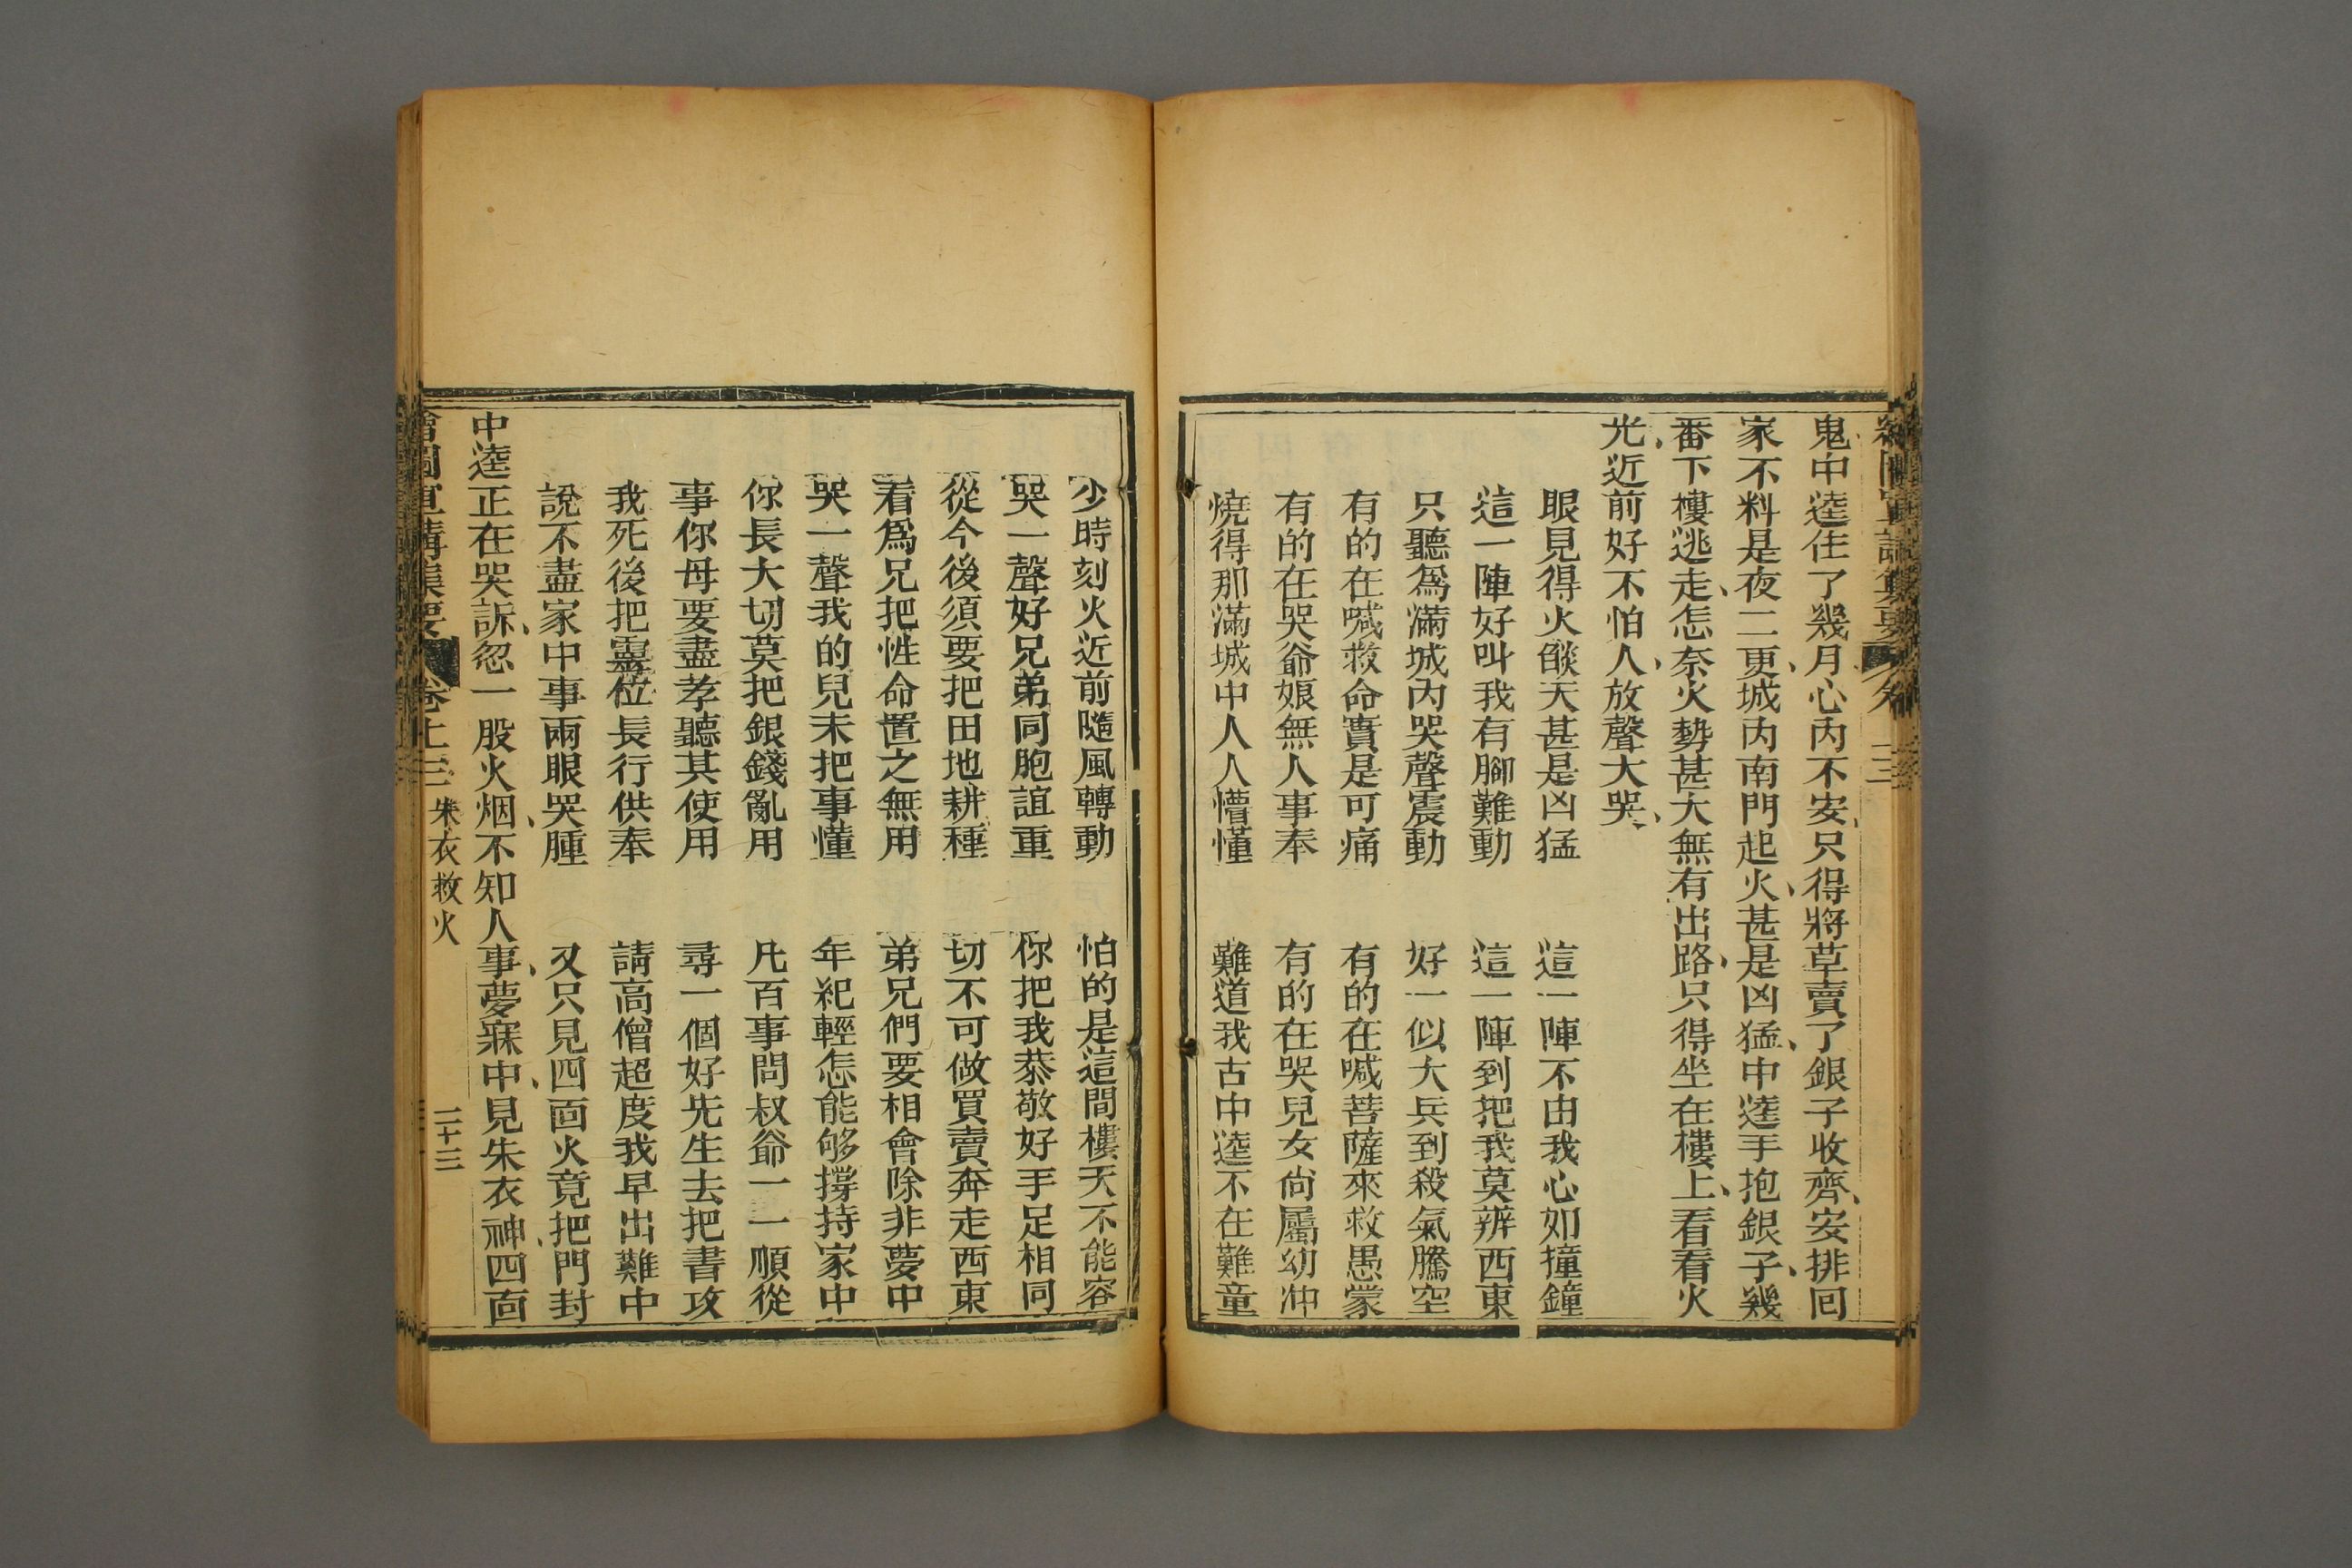 鬼中逵住了幾月心內不安只得將草賣了銀子收齊安排回
家不料是夜二更城內南門起火甚是凶猛中逵手抱銀子幾
番下樓逃走怎奈火勢甚大無有出路只得坐在樓上看看火
光近前好不怕人放聲大哭
眼見得火燄天甚是凶猛　這一陣不由我心如撞鐘
這一陣好叫我有腳難動　這一陣到把我莫辨西東
只聽爲滿城內哭聲震動　好一似大兵到殺氣騰空
有的在喊救命實是可痛　有的在喊菩薩來救愚蒙
有的在哭爺娘無人事奉　有的在哭兒女尙屬幼冲
燒得那滿城中人人懵懂　難道我古中逵不在難童
少時刻火近前隨風轉動　怕的是這間樓天不能容
哭一聲好兄弟同胞誼重　你把我恭敬好手足相同
從今後須要把田地耕種　切不可做買賣奔走西東
看爲兄把性命置之無用　弟兄們要相會除非夢中
哭一聲我的兒未把事懂　年紀輕怎能够撐持家中
你長大切莫把銀錢亂用　凡百事問叔爺一一順從
事你母要盡孝聽其使用　尋一個好先生去把書攻
我死後把靈位長行供奉　請高僧超度我早出難中
說不盡家中事兩眼哭腫　又只見四面火竟把門封
中逵正在哭訴忽一股火烟不知人事夢寐中見朱衣神四面
宣講集要　卷十三　朱衣救火　二十三